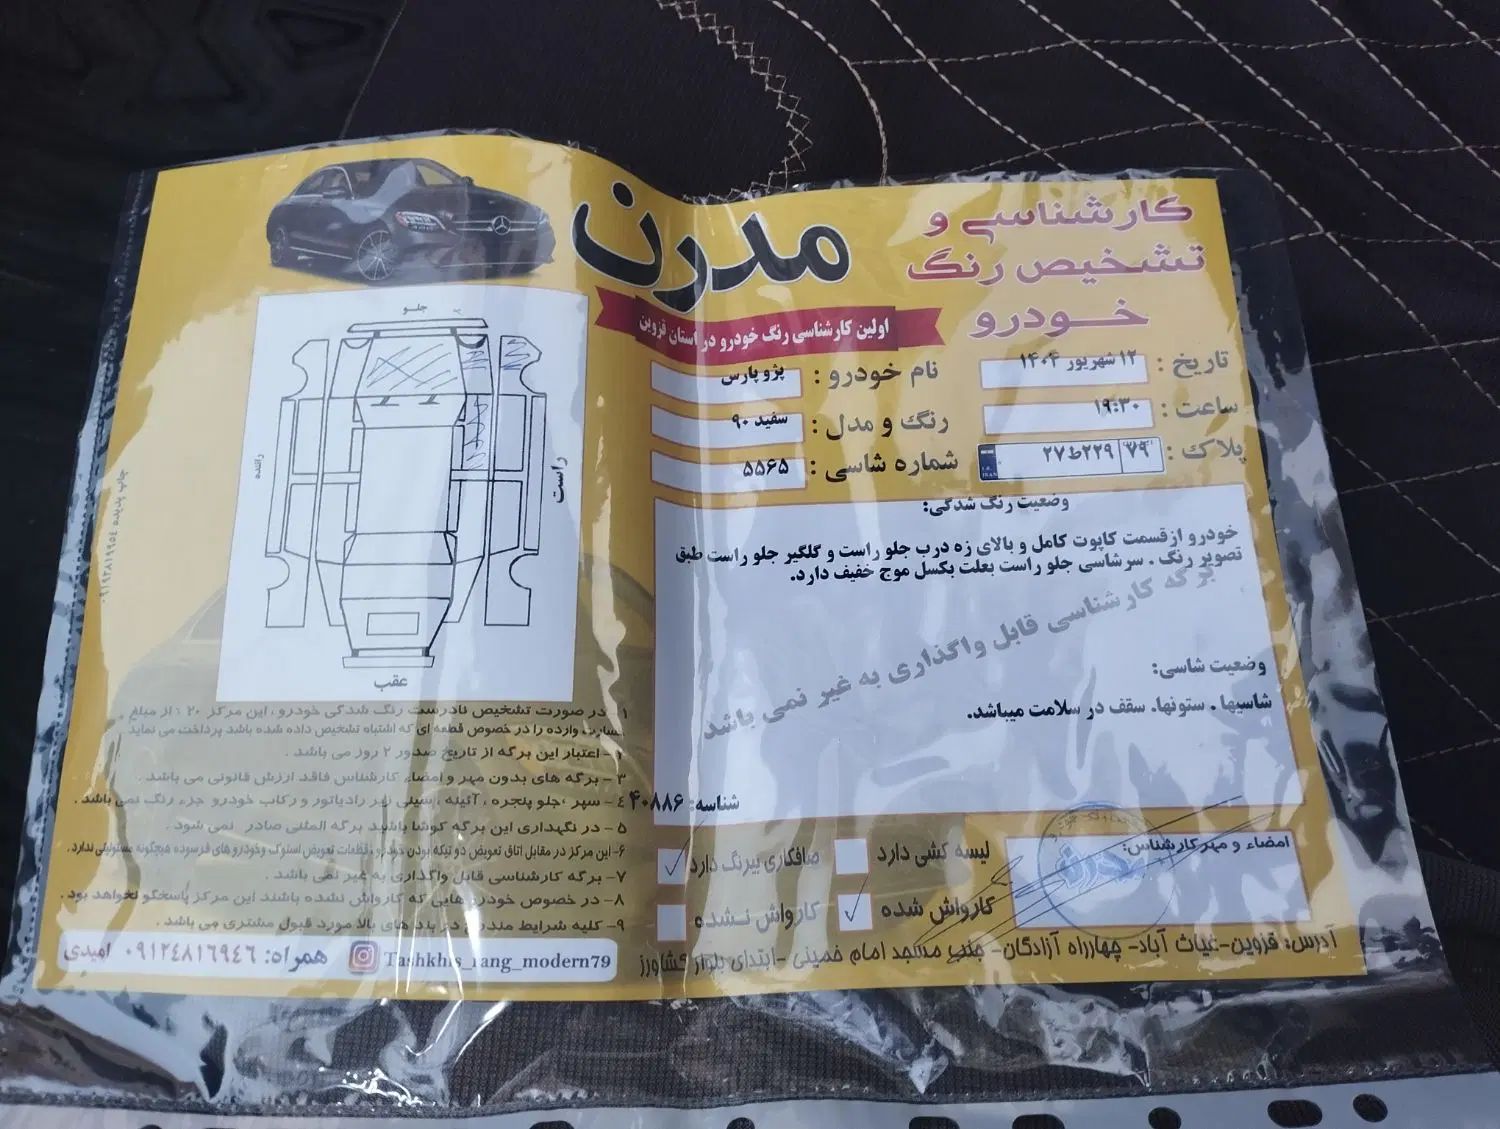 کارشناسی و
تشخیص رنگ
خودرو
مدرن
اولین کارشناسی رنگ خودرو در استان قزوین
تاریخ : ۱۲ شهریور ۱۴۰۴
ساعت : ۱۹:۳۰
پلاک : ۷۹ ۲۲۹ط۲۷
نام خودرو : پژو پارس
رنگ و مدل : سفید ۹۰
شماره شاسی : ۵۵۶۵
وضعیت رنگ شدگی:
خودرو ازقسمت کاپوت کامل و بالای زه درب جلو راست و گلگیر جلو راست طبق
تصویر رنگ . سرشاسی جلو راست بعلت بکسل موج خفیف دارد.
برگه کارشناسی قابل واگذاری به غیر نمی باشد
وضعیت شاسی:
شاسیها . ستونها. سقف در سلامت میباشد.
شناسه: ۴۰۸۸۶
امضاء و مهر کارشناس:
مدرن
لیسه کشی دارد
صافکاری بیرنگ دارد
کارواش شده
کارواش نشده
آدرس: قزوین-غیاث آباد- چهارراه آزادگان- جنب مسجد امام خمینی -ابتدای بلوار کشاورز
جلو
راننده
راست
عقب
چاپ پدیده
۱- در صورت تشخیص نادرست رنگ شدگی خودرو ، این مرکز ۲۰ ٪ از مبلغ
خسارت وارده را در خصوص قطعه ای که اشتباه تشخیص داده شده باشد پرداخت می نماید
۲- اعتبار این برگه از تاریخ صدور ۲ روز می باشد .
۳- برگه های بدون مهر و امضاء کارشناس فاقد ارزش قانونی می باشد .
٤- سپر ،جلو پنجره ، آئینه ، سینی زیر رادیاتور و رکاب خودرو جزء رنگ نمی باشد .
۵- در نگهداری این برگه کوشا باشید برگه المثنی صادر نمی شود .
۶- این مرکز در مقابل اتاق تعویض دو تیکه بودن خودرو ، قطعات تعویض استوک وخودرو های فرسوده هیچگونه مسئولیتی ندارد .
۷- برگه کارشناسی قابل واگذاری به غیر نمی باشد .
۸- در خصوص خودرو هایی که کارواش نشده باشند این مرکز پاسخگو نخواهد بود .
۹- کلیه شرایط مندرج در بند های بالا مورد قبول مشتری می باشد .
Tashkhis_rang_modern79 همراه: ۰۹۱۲٤۸۱٦۹٤٦ امیدی